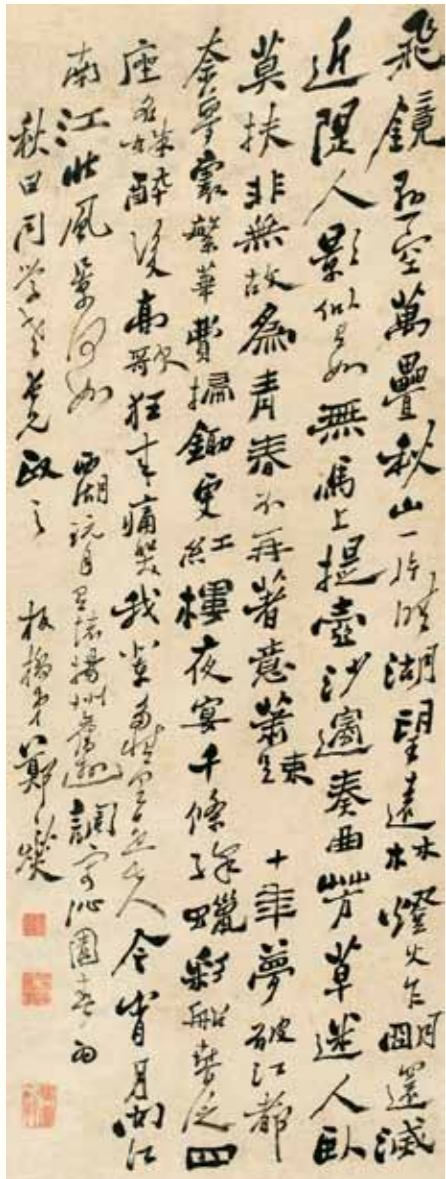 飛鏡懸空萬疊秋山一片晴湖望遠林燈火乍明還滅
近隄人影似有如無馬上提壺沙邊奏曲芳草迷人臥
莫扶非無故為青春不再著意蕭疎 十年夢破江都
奈夢裏繁華費掃鋤更紅樓夜宴千條絳蠟彩船春泛四
座名姝醉後高歌狂來痛哭我輩多情有是夫今宵月問江
南江北風景何如 西湖玩月有懷揚州舊遊調寄沁園春為
秋田同學老長兄政之 板橋弟鄭燮